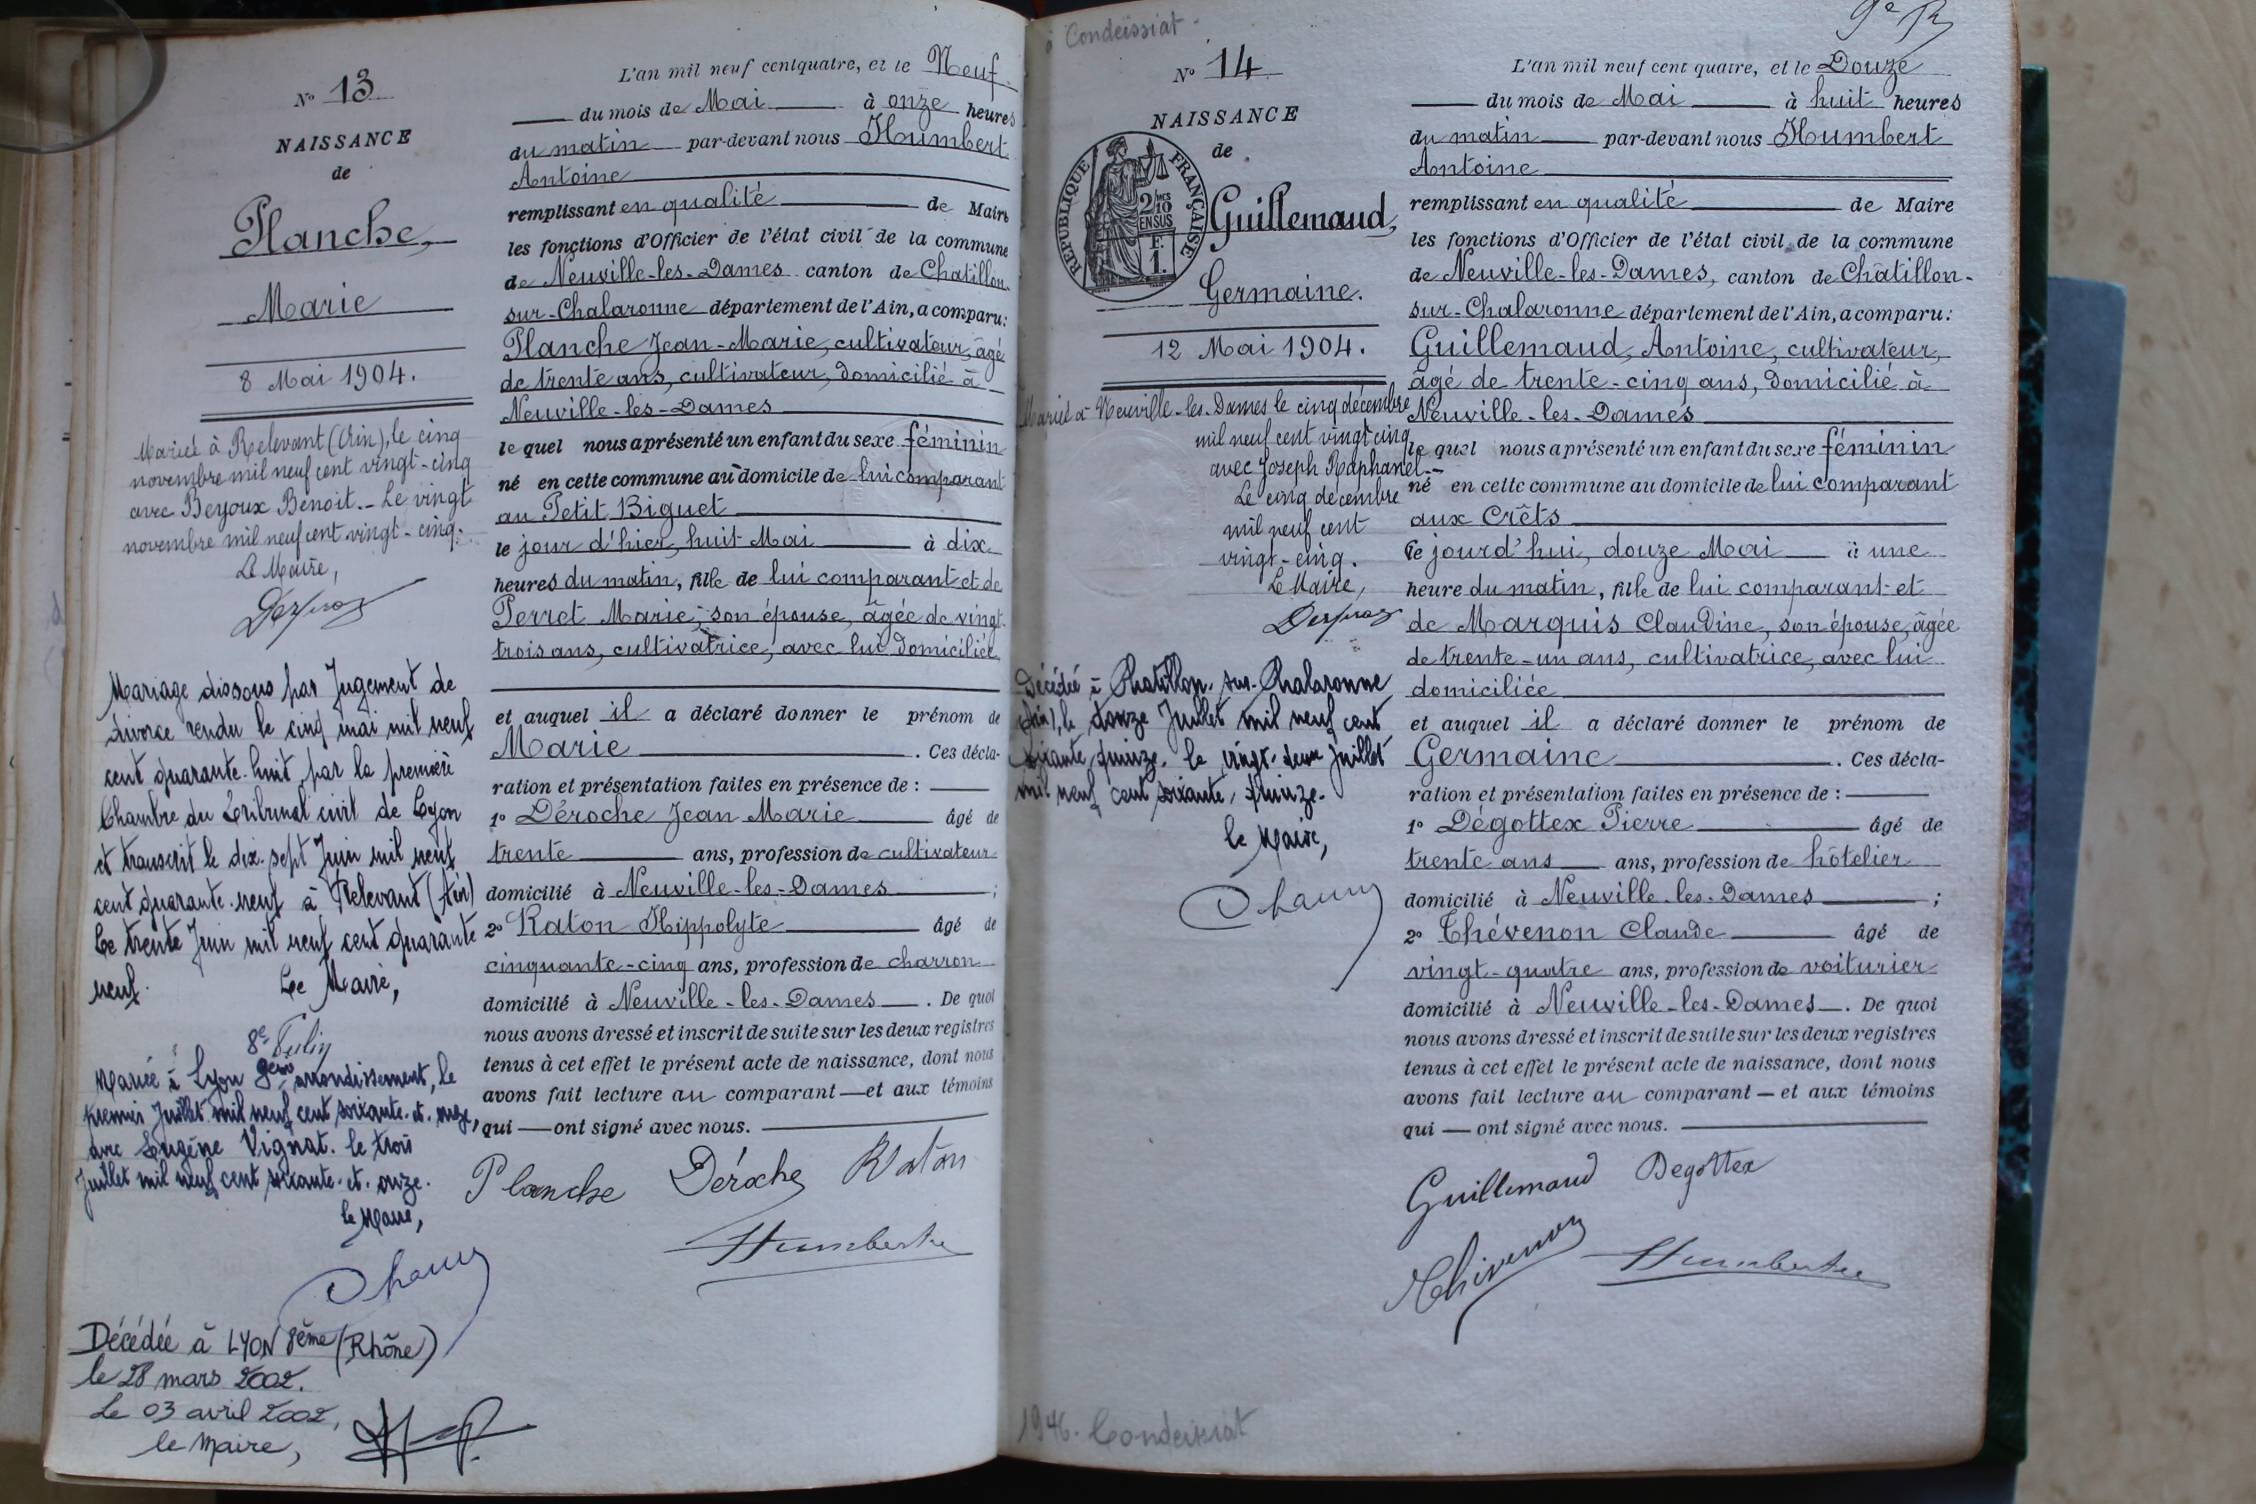 N° 13
NAISSANCE
de
Planche,
Marie
8 Mai 1904.
Mariée à Relevant (Ain), le cinq
novembre mil neuf cent vingt-cinq
avec Beyoux Benoit._ Le vingt
novembre mil neuf cent vingt-cinq.
Le Maire,
Mariage dissous par Jugement de
divorce rendu le cinq mai mil neuf
cent quarante-huit par la première
Chambre du Tribunal civil de Lyon
et transcrit le dix-sept Juin mil neuf
cent quarante-neuf à Relevant (Ain)
Le trente Juin mil neuf cent quarante
neuf. Le Maire,
8e
Mariée à Lyon arrondissement, le
premier Juillet mil neuf cent soixante-et-onze,
avec Eugène Vignat. le trois
Juillet mil neuf cent soixante-et-onze.
le Maire,
Décédée à LYON 8ème (Rhône)
le 28 mars 2002.
Le 03 avril 2002,
le Maire,
L'an mil neuf cent quatre, et le Neuf
du mois de Mai à onze heures
du matin par-devant nous Humbert
Antoine
remplissant en qualité de Maire
les fonctions d'Officier de l'état civil de la commune
de Neuville-les-Dames canton de Chatillon
sur-Chalaronne département de l'Ain, a comparu:
Planche Jean-Marie, cultivateur, âgé
de trente ans, cultivateur, domicilié à
Neuville-les-Dames
le quel nous a présenté un enfant du sexe féminin
né en cette commune au domicile de lui comparant
au Petit Biguet
le jour d'hier, huit Mai à dix
heures du matin, fille de lui comparant et de
Perret Marie, son épouse, âgée de vingt-
trois ans, cultivatrice, avec lui domiciliée
et auquel il a déclaré donner le prénom de
Marie . Ces décla-
ration et présentation faites en présence de :
1° Déroche Jean Marie âgé de
trente ans, profession de cultivateur
domicilié à Neuville-les-Dames ;
2° Raton Hippolyte âgé de
cinquante-cinq ans, profession de charron
domicilié à Neuville-les-Dames . De quoi
nous avons dressé et inscrit de suite sur les deux registres
tenus à cet effet le présent acte de naissance, dont nous
avons fait lecture au comparant — et aux témoins
qui — ont signé avec nous.
Planche Déroche Raton
Humbert
à Condeissiat.
N° 14
NAISSANCE
de
REPUBLIQUE FRANÇAISE
2/10
EN SUS
F.
1.
Guillemaud,
Germaine.
12 Mai 1904.
Mariée à Neuville-les-Dames le cinq décembre
mil neuf cent vingt cinq
avec Joseph Raphanel.-
Le cinq décembre
mil neuf cent
vingt-cinq.
Le Maire,
Décédée à Chatillon-sur-Chalaronne
(Ain), le douze Juillet mil neuf cent
soixante, quinze. le vingt-deux Juillet
mil neuf cent soixante, quinze.
le Maire,
1946. Condeissiat
L'an mil neuf cent quatre, et le Douze
du mois de Mai à huit heures
du matin par-devant nous Humbert
Antoine
remplissant en qualité de Maire
les fonctions d'Officier de l'état civil de la commune
de Neuville-les-Dames, canton de Châtillon-
sur-Chalaronne département de l'Ain, a comparu:
Guillemaud, Antoine, cultivateur,
âgé de trente-cinq ans, domicilié à
Neuville-les-Dames
le quel nous a présenté un enfant du sexe féminin
né en cette commune au domicile de lui comparant
aux Crêts
ce jourd'hui, douze Mai à une
heure du matin, fille de lui comparant et
de Marquis Claudine, son épouse, âgée
de trente-un ans, cultivatrice, avec lui
domiciliée
et auquel il a déclaré donner le prénom de
Germaine . Ces décla-
ration et présentation faites en présence de :
1° Dégottex Pierre âgé de
trente ans ans, profession de hôtelier
domicilié à Neuville-les-Dames ;
2° Thévenon Claude âgé de
vingt-quatre ans, profession de voiturier
domicilié à Neuville-les-Dames . De quoi
nous avons dressé et inscrit de suite sur les deux registres
tenus à cet effet le présent acte de naissance, dont nous
avons fait lecture au comparant — et aux témoins
qui — ont signé avec nous.
Guillemaud Degottex
Thévenon Humbert